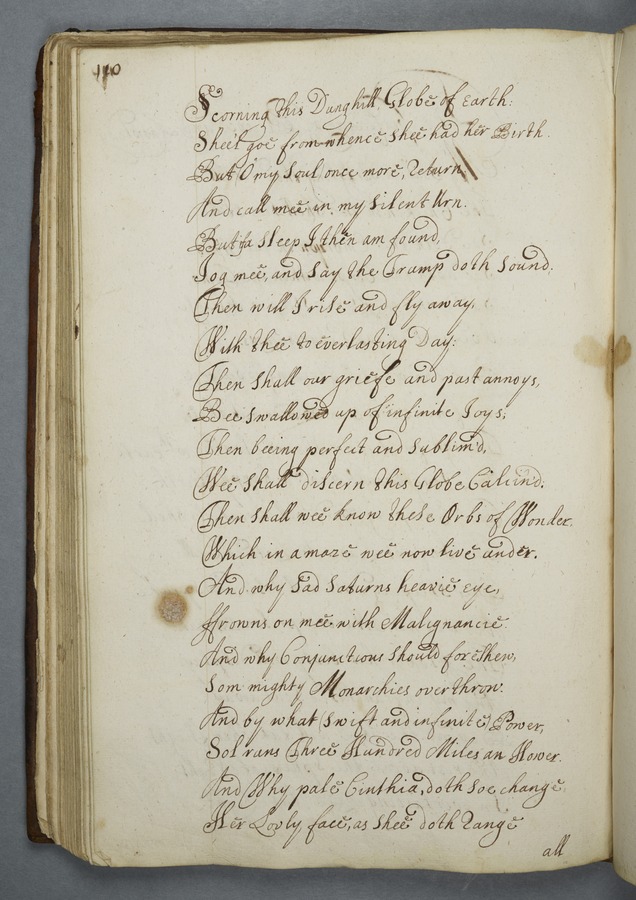 140
Scorning this Dunghill Globe of Earth:
Shee't goe from whence shee had her Birth
But O my Soul once more, Return
And call mee in my Silent Urn.
But Sleep I then am found,
Jog mee, and say the Trump doth sound.
Then will I rise and fly away,
With thee to everlasting Day:
Then shall our griefe and past annoys,
Bee swallowed up of infinite Joys;
Then beeing perfect and Sublim'd,
Wee shall discern this Globe Calcin'd;
Then shall wee know these Orbs of Wonder
Which in a maze wee now live under.
And why Sad Saturns heavie eye,
ffrowns on mee with Malignancie
And why Conjunctions should foreshew,
Som mighty Monarchies overthrow:
And by what swift and infinite Power,
Sol runs Three Hundred Miles an Hower.
And Why pale Cinthia, doth soe change
Her Lovly face, as shee doth Range
all